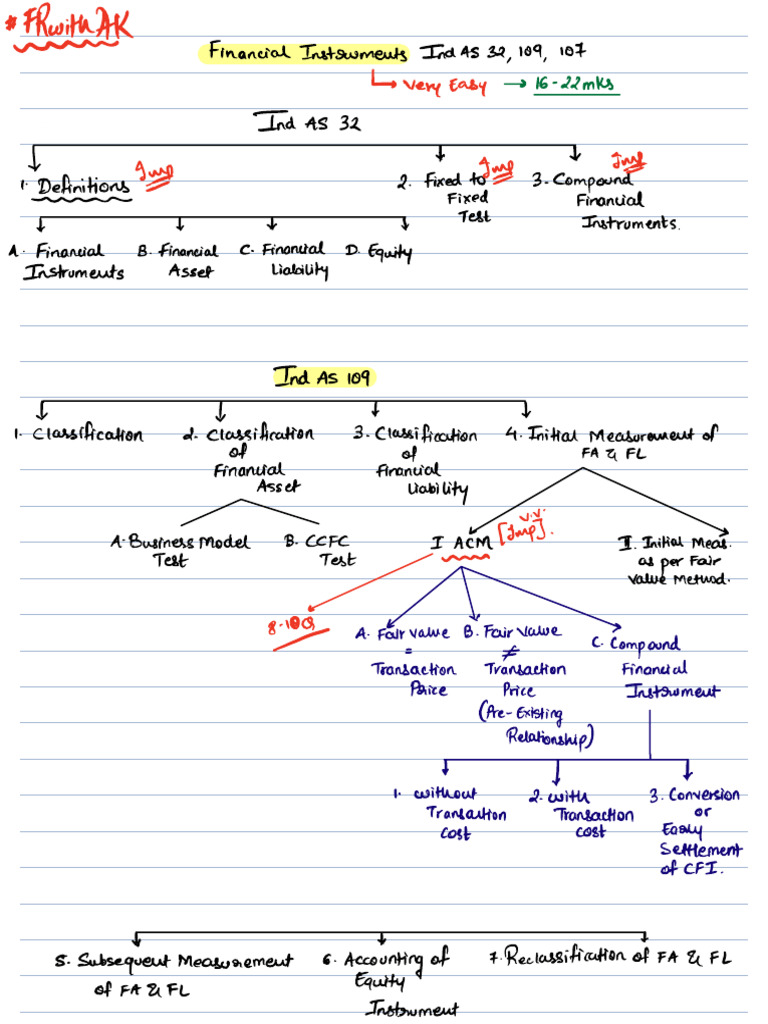 * FR with AK
Financial Instruments Ind AS 32, 109, 107
Very Easy → 16-22 mks
Ind AS 32
1. Definitions Imp
2. Fixed to Fixed Test Imp
3. Compound Financial Instruments. Imp
A. Financial Instruments
B. Financial Asset
C. Financial Liability
D. Equity
Ind AS 109
1. Classification
2. Classification of Financial Asset
3. Classification of Financial Liability
4. Initial Measurement of FA & FL
A. Business Model Test
B. CCFC Test
I ACM [V.V. Imp].
II. Initial Meas. as per Fair Value Method.
8-10Q
A. Fair value = Transaction Price
B. Fair Value ≠ Transaction Price (Pre-Existing Relationship)
C. Compound Financial Instrument
1. Without Transaction Cost
2. With Transaction Cost
3. Conversion or Early Settlement of CFI.
5. Subsequent Measurement of FA & FL
6. Accounting of Equity Instrument
7. Reclassification of FA & FL